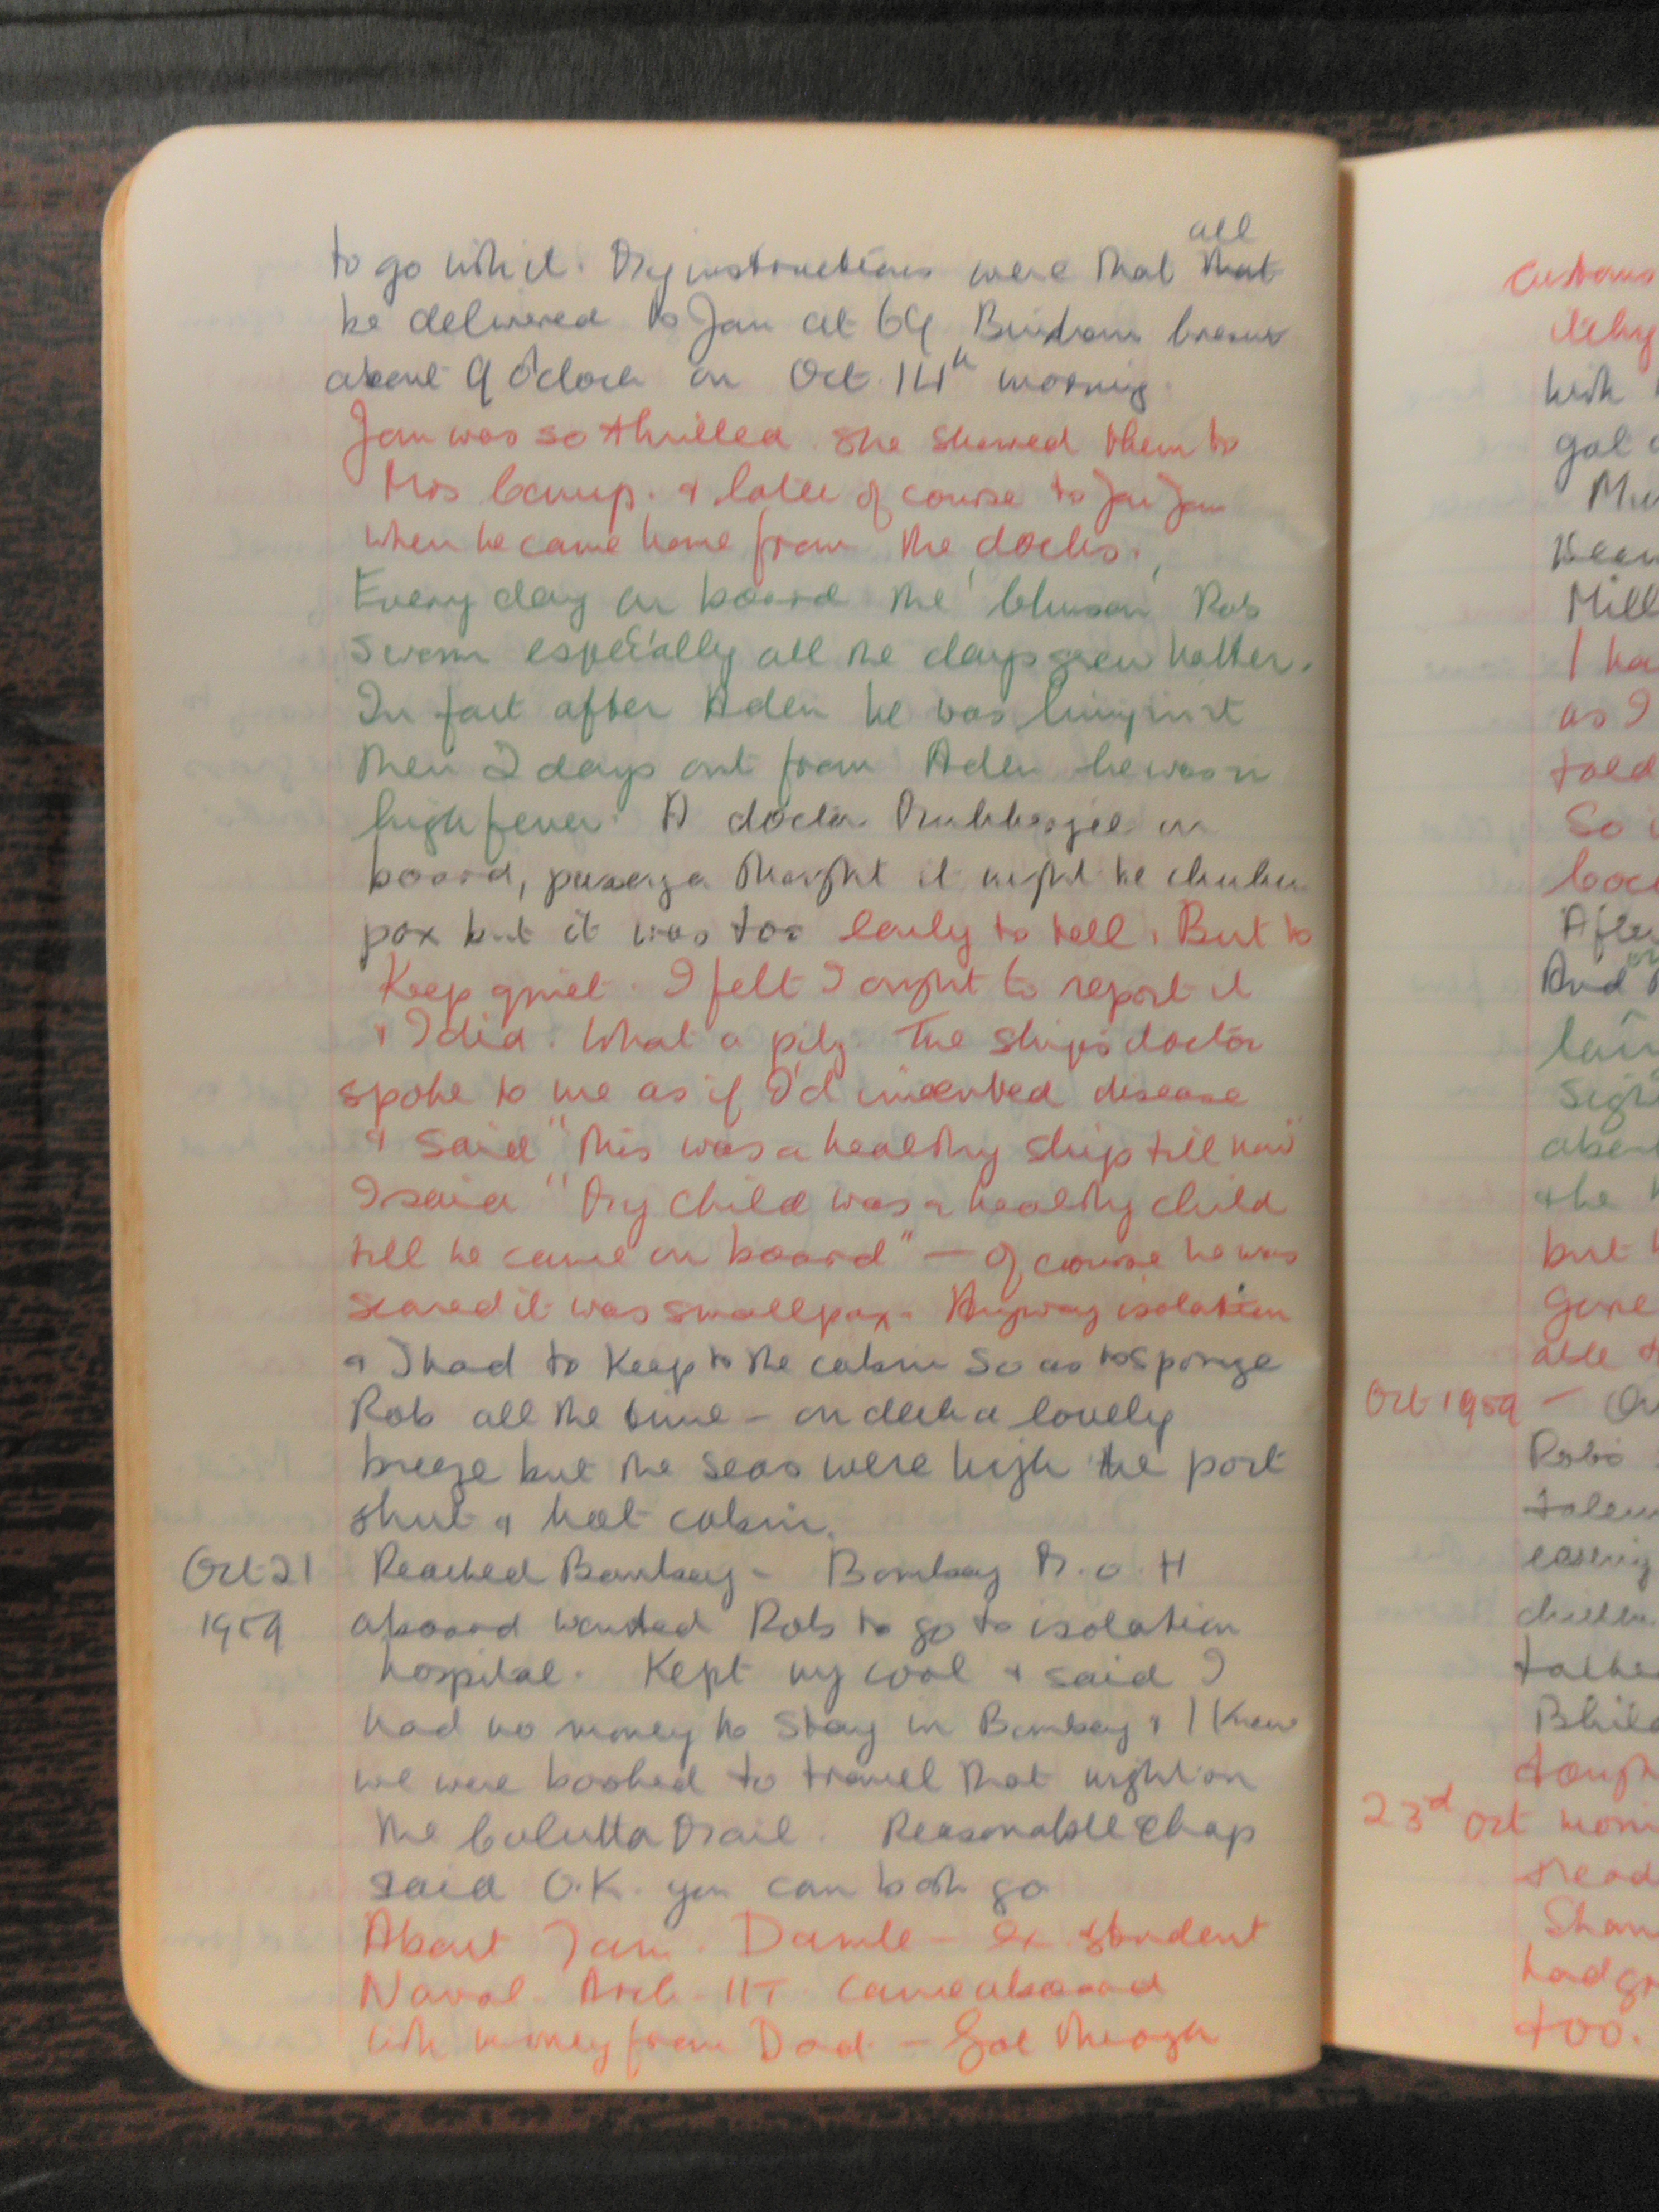 to go with it. My instructions were that all that
be delivered to Jan at 64
about 9 o'clock on Oct. 14th morning.
Jan was so thrilled. She showed them to
Mrs & later of course to Jan
when he came home from the docks.
Every day on board the 'Chusan' Rob
swam especially all the days grew hotter.
In fact after Aden he was living in it
Then 2 days out from Aden he was in
high fever. A doctor Mukherjee on
board, thought it might be chicken
pox but it was too early to tell. But to
Keep quiet. I felt I ought to report it
& I did. What a pity. The ship's doctor
spoke to me as if I'd invented disease
& said "This was a healthy ship till now"
I said "My child was a healthy child
till he came on board" — Of course he was
scared it was smallpox. Anyway isolation
& I had to Keep to the cabin so as to sponge
Rob all the time – on deck a lovely
breeze but the seas were high the port
shut & hot cabin.
Oct 21 Reached Bombay – Bombay M.O.H
1959 aboard wanted Rob to go to isolation
hospital. Kept my cool & said I
had no money to stay in Bombay & I Knew
we were booked to travel that night on
the Calcutta Mail. Reasonable chap
said O.K. you can both go
About 7am. Damle – ex student
Naval Arch. IIT. Came aboard
with money from Dad. – Got through
Customs
with
got
I ha
as I
told
So
And
but
Oct 1959 –
23rd Oct
too.